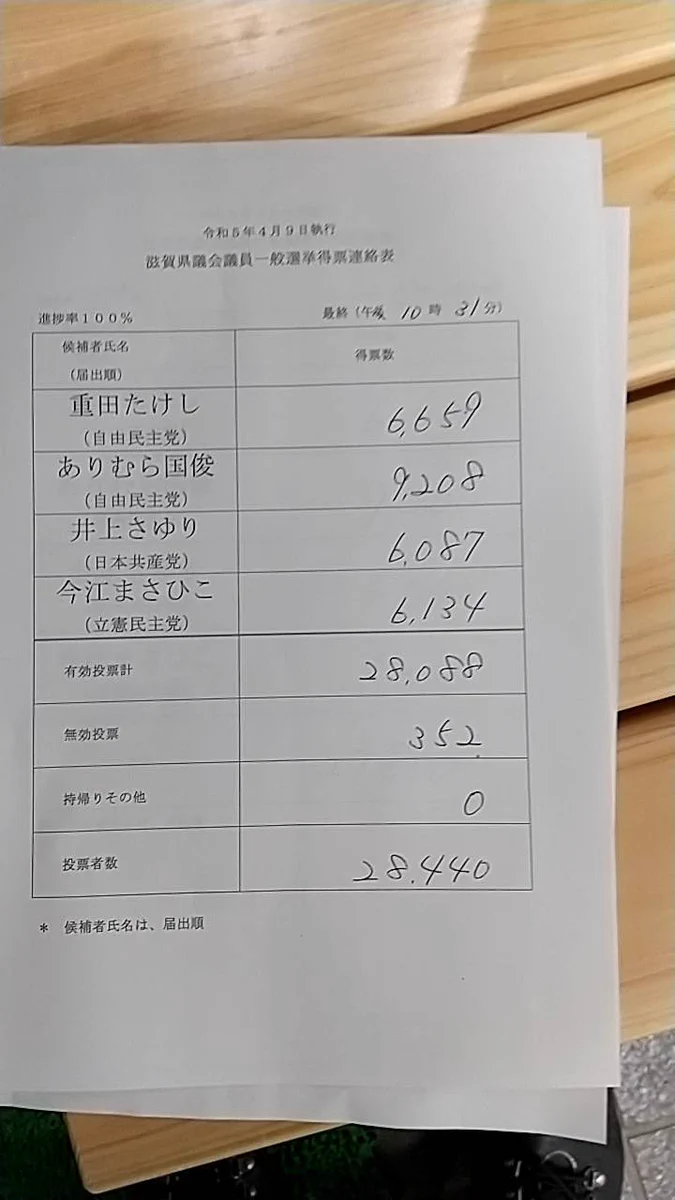 令和5年4月9日執行
滋賀県議会議員一般選挙得票連絡表
進捗率100%
最終（午後 10 時 31 分）
候補者氏名
（届出順）
得票数
重田たけし
（自由民主党）
6,659
ありむら国俊
（自由民主党）
9,208
井上さゆり
（日本共産党）
6,087
今江まさひこ
（立憲民主党）
6,134
有効投票計
28,088
無効投票
352
持帰りその他
0
投票者数
28,440
＊ 候補者氏名は、届出順